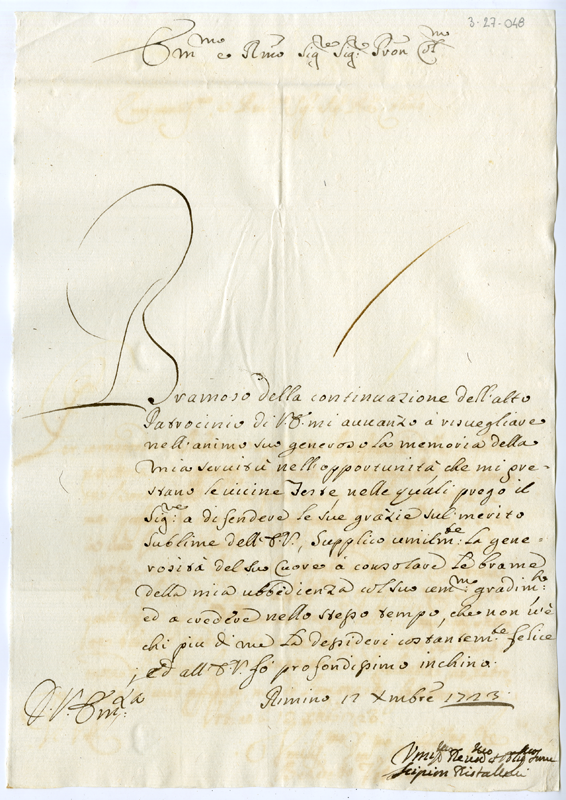 3-27-048
Em.mo e Rmo Sig.re Sig.re Pron Col.mo
Bramoso della continuazione dell'alto
Patrocinio di V.E. mi auuanzo à risuegliare
nell'animo suo generoso la memoria della
mia seruitù nell'opportunità che mi pre-
stano le uicine Feste nelle quali prego il
Sig.re à difendere le sue grazie sul merito
sublime dell'E.V., Supplico umilm.te la gene-
rosità del suo Cuore à consolare le brame
della mia ubbedienza col suo gradim.to
ed a credere nello stesso tempo, che non u'è
chi piu di me La dessideri costantem.te felice
, ed all'E.V. fò profondissimo inchino.
Rimino 12 Xmbre 1723.
D. V. Em.za
Vmil.mo Deuo.mo et Oblig.mo Seru.re
Scipion